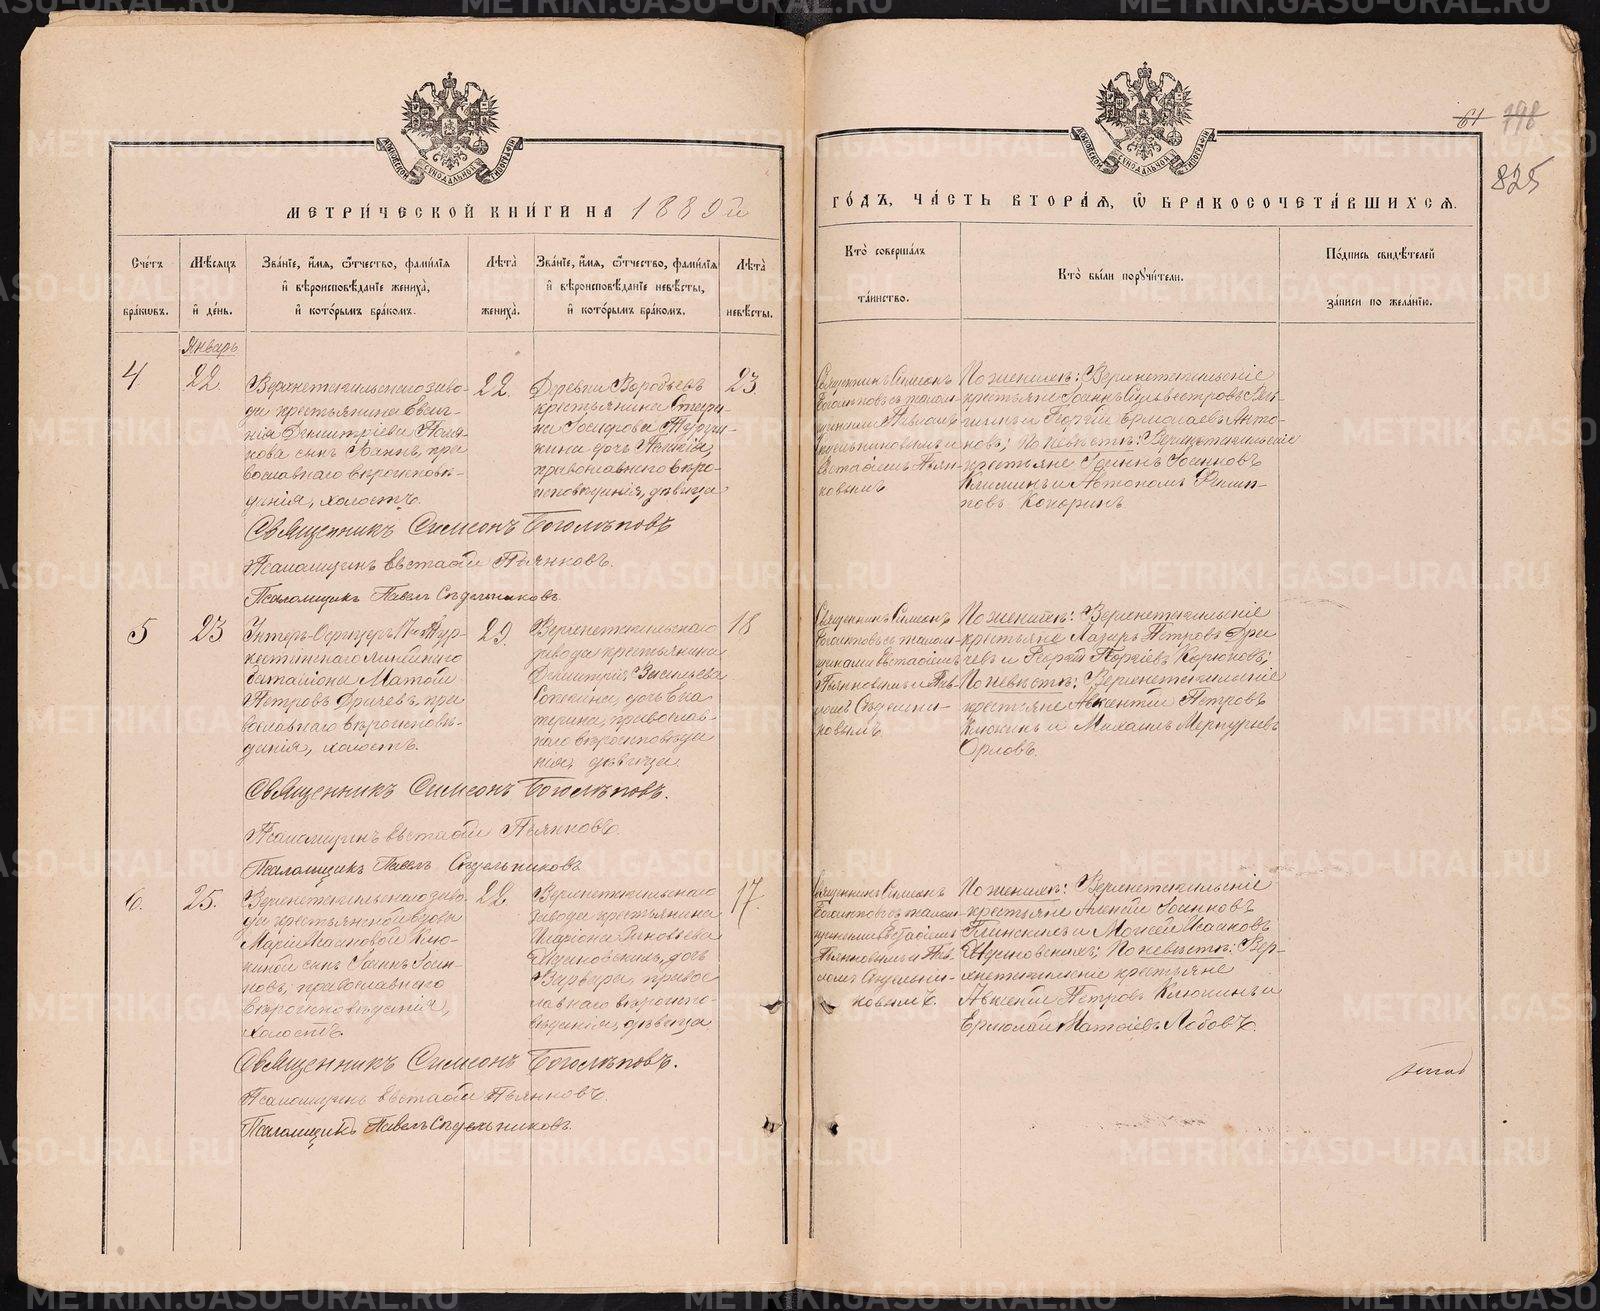 МЕТРИЧЕСКОЙ КНИГИ НА 1889й
ГОДЪ, ЧАСТЬ ВТОРАЯ, Ѡ БРАКОСОЧЕТАВШИХСЯ.
61 198
825
Счетъ браковъ.
Мѣсяцъ и день.
Званіе, имя, отчество, фамилія
и вѣроисповѣданіе жениха,
и которымъ бракомъ.
Лѣта жениха.
Званіе, имя, отчество, фамилія
и вѣроисповѣданіе невѣсты,
и которымъ бракомъ.
Лѣта невѣсты.
Кто совершалъ
таинство.
Кто были поручители.
Подпись свидѣтелей
записи по желанію.
Январь
4
22.
Верхнетагильскаго заво-
да крестьянина Евге-
нія Димитріева Поля-
кова сынъ Іоаннъ, пра
вославнаго вѣроисповѣ-
данія, холостъ.
22.
Древни Воробьевъ
крестьянина Стефа-
на Іосифова
дочь
православнаго вѣро-
исповѣданія, дѣвица
23.
Священникъ Симеонъ
Боголѣповъ съ псалом-
щиками Павломъ
Сѣдельниковымъ и
Евстафіемъ Пьян-
ковымъ
По женихѣ: Верхнетагильскіе
крестьяне Іоаннъ Сильвестровъ
и Георгій Ермолаевъ Анто-
новъ; по невѣстѣ: Верхнетагильскіе
крестьяне Іоаннъ Іоанновъ
и Автономъ Филип-
повъ Кокоринъ
Священникъ Симеонъ Боголѣповъ
Псаломщикъ Евстафій Пьянковъ.
Псаломщикъ Павелъ Сѣдельниковъ
5
23
Унтеръ-Офицеръ 17го Тур-
кестанскаго линейнаго
баталіона Матѳій
Петровъ Дричевъ, пра
вославнаго вѣроисповѣ-
данія, холостъ.
29.
Верхнетагильскаго
завода крестьянина
Димитрія Васильева
дочь Ека
терина, православ-
наго вѣроисповѣда
нія, дѣвица.
18
Священникъ Симеонъ
Боголѣповъ съ псалом-
щиками Евстафіемъ
Пьянковымъ и Пав-
ломъ Сѣдельни-
ковымъ
По женихѣ: Верхнетагильскіе
крестьяне Лазарь Петровъ Дри
чевъ и Георгій Георгіевъ Корюковъ;
По невѣстѣ: Верхнетагильскіе
крестьяне Авксентій Петровъ
Клюкинъ и Михаилъ Меркурьевъ
Орловъ.
Священникъ Симеонъ Боголѣповъ.
Псаломщикъ Евстафій Пьянковъ.
Псаломщикъ Павелъ Сѣдельниковъ
6.
25.
Верхнетагильскаго заво-
да крестьянской вдовы
Маріи Исааковой Клю-
киной сынъ Іоаннъ Іоан-
новъ, православнаго
вѣроисповѣданія,
холостъ
22
Верхнетагильскаго
завода крестьянина
Иларіона Зиновьева
дочь
Варвара, право
славнаго вѣроиспо-
вѣданія, дѣвица
17.
Священникъ Симеонъ
Боголѣповъ съ псалом-
щиками Евстафіемъ
Пьянковымъ и Пав-
ломъ Сѣдельни-
ковымъ.
По женихѣ: Верхнетагильскіе
крестьяне Алексій Іоанновъ
Глинскихъ и Моисей Исааковъ
По невѣстѣ: Вер-
хнетагильскіе крестьяне
Авксентій Петровъ Клюкинъ и
Ермолай Матѳіевъ Лобовъ.
Священникъ Симеонъ Боголѣповъ.
Псаломщикъ Евстафій Пьянковъ.
Псаломщикъ Павелъ Сѣдельниковъ.
METRIKI.GASO-URAL.RU